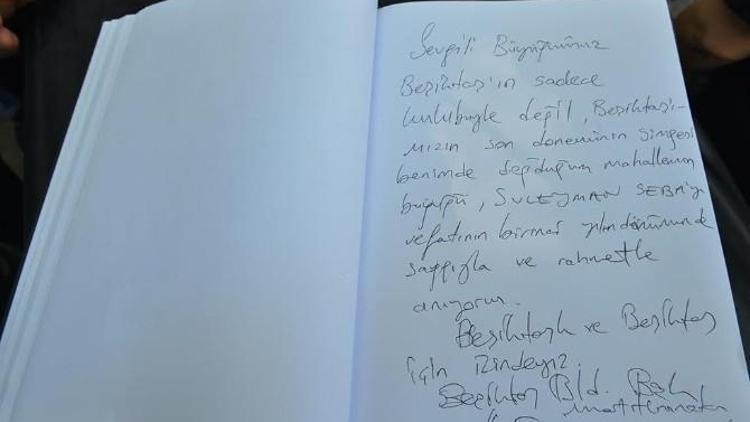 Sevgili Büyüğümüz
Beşiktaş'ın sadece
kulübüyle değil, Beşiktaşı-
mızın son döneminin simgesi
benimde doğduğum mahallemin
büyüğü, SÜLEYMAN SEBA'yı
vefatının birinci yıldönümünde
saygıyla ve rahmetle
anıyorum.
Beşiktaşlı ve Beşiktaş
için izindeyiz.
Beşiktaş Bld. Bşk